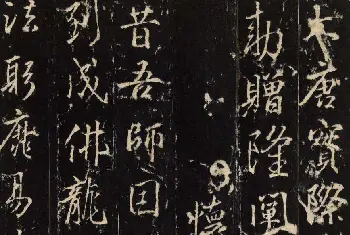 大唐實際
勅贈隆闡
懷
昔吾師因
到成佛龍
法躬靡易